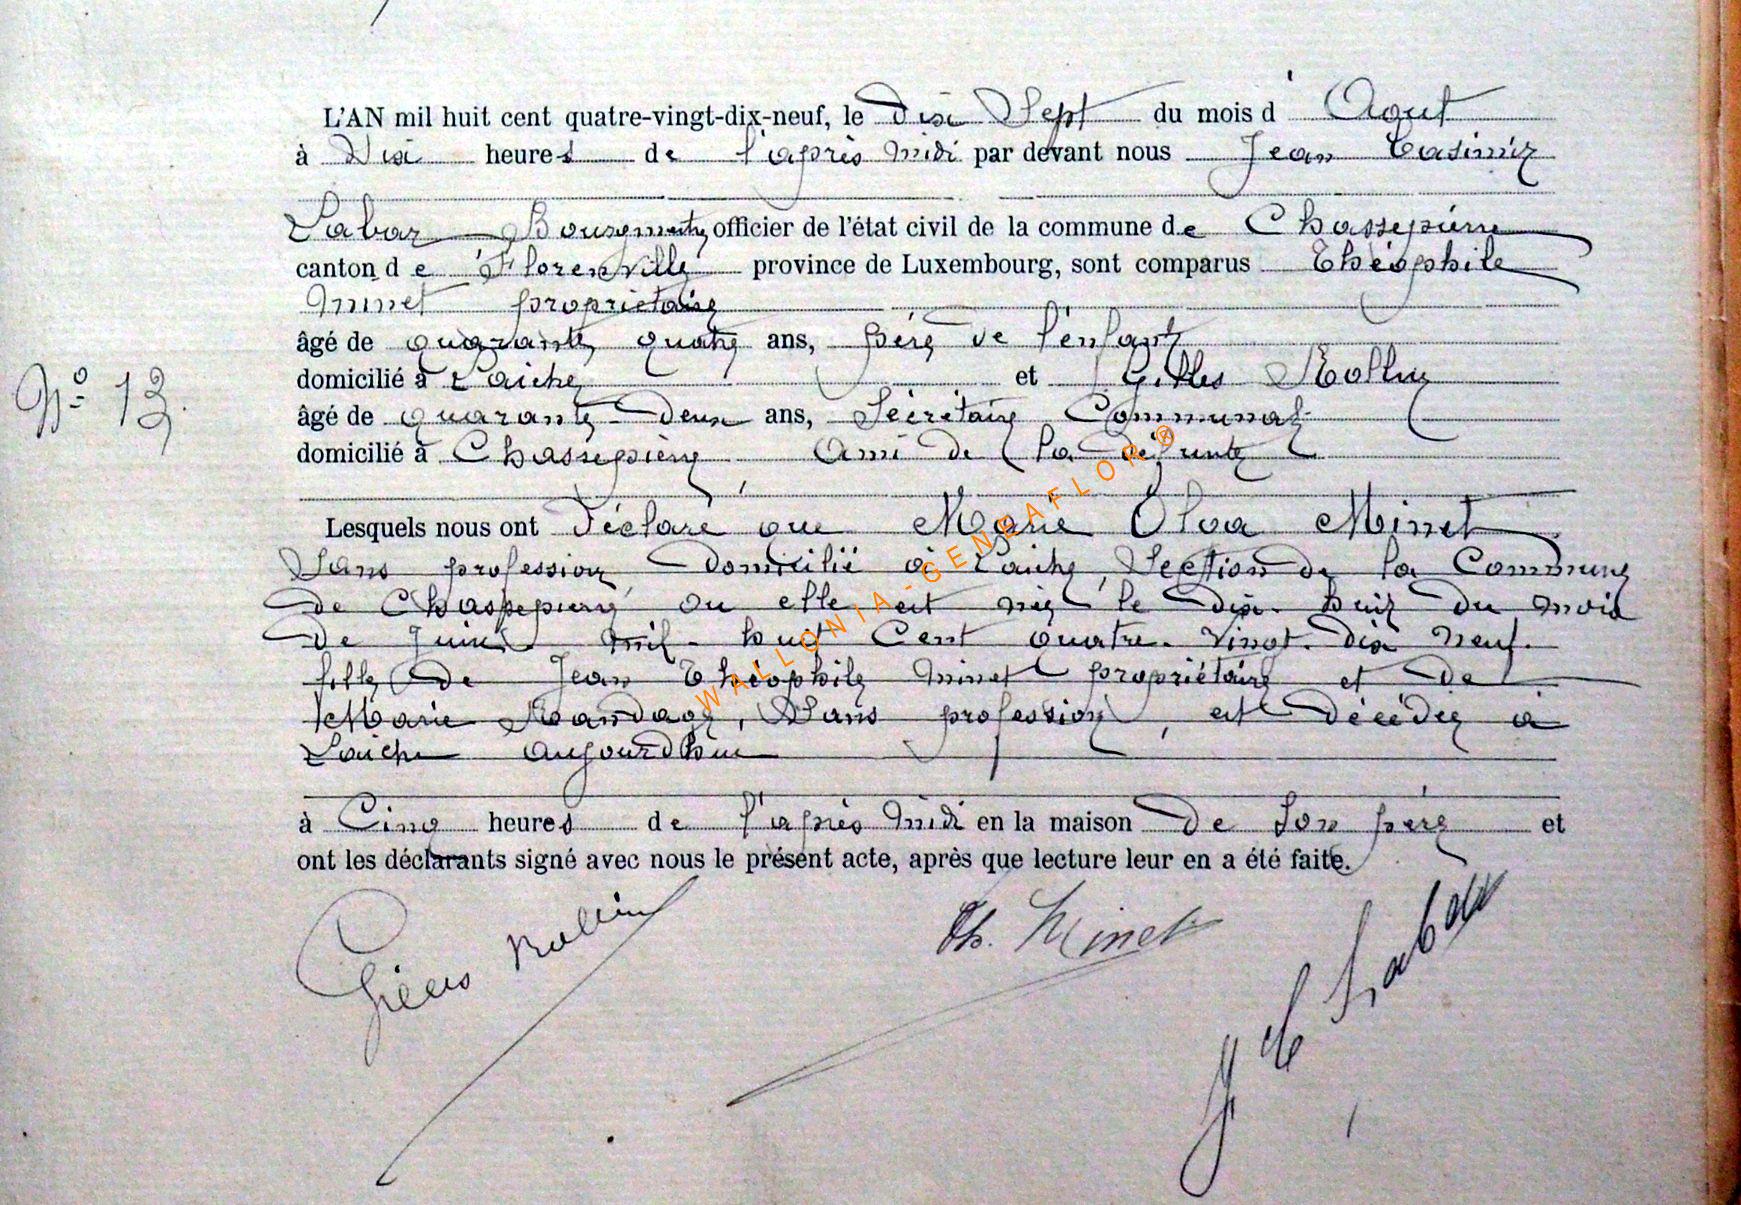 L'AN mil huit cent quatre-vingt-dix-neuf, le dix Sept du mois d' Aout
à Dix heures de l'après midi par devant nous Jean Casimir
Labar Bourgmestre officier de l'état civil de la commune de Chassepierre
canton de Florenville province de Luxembourg, sont comparus Théophile
Minet propriétaire
âgé de quarante quatre ans, père de l'enfant
domicilié à Laiche et Gilles Rollin
N° 13.
âgé de quarante-Deux ans, Sécrétaire Communal
domicilié à Chassepierre, Ami de la défunte
Lesquels nous ont Déclaré que Marie Olga Minet
Sans profession Domicilié à Laiche, Section de la Commune
de Chassepierre ou elle est née le dix-huit du mois
De Juin mil-huit Cent quatre-vingt-dix neuf.
fille de Jean Théophile Minet propriétaire et de
Marie, Sans profession, est Décédée à
Laiche aujourdhui
à Cinq heures de l'après Midi en la maison De Son père et
ont les déclarants signé avec nous le présent acte, après que lecture leur en a été faite.
Gilles Rollin Th. Minet J C Labar
WALLONIA-GENEAFLOR®